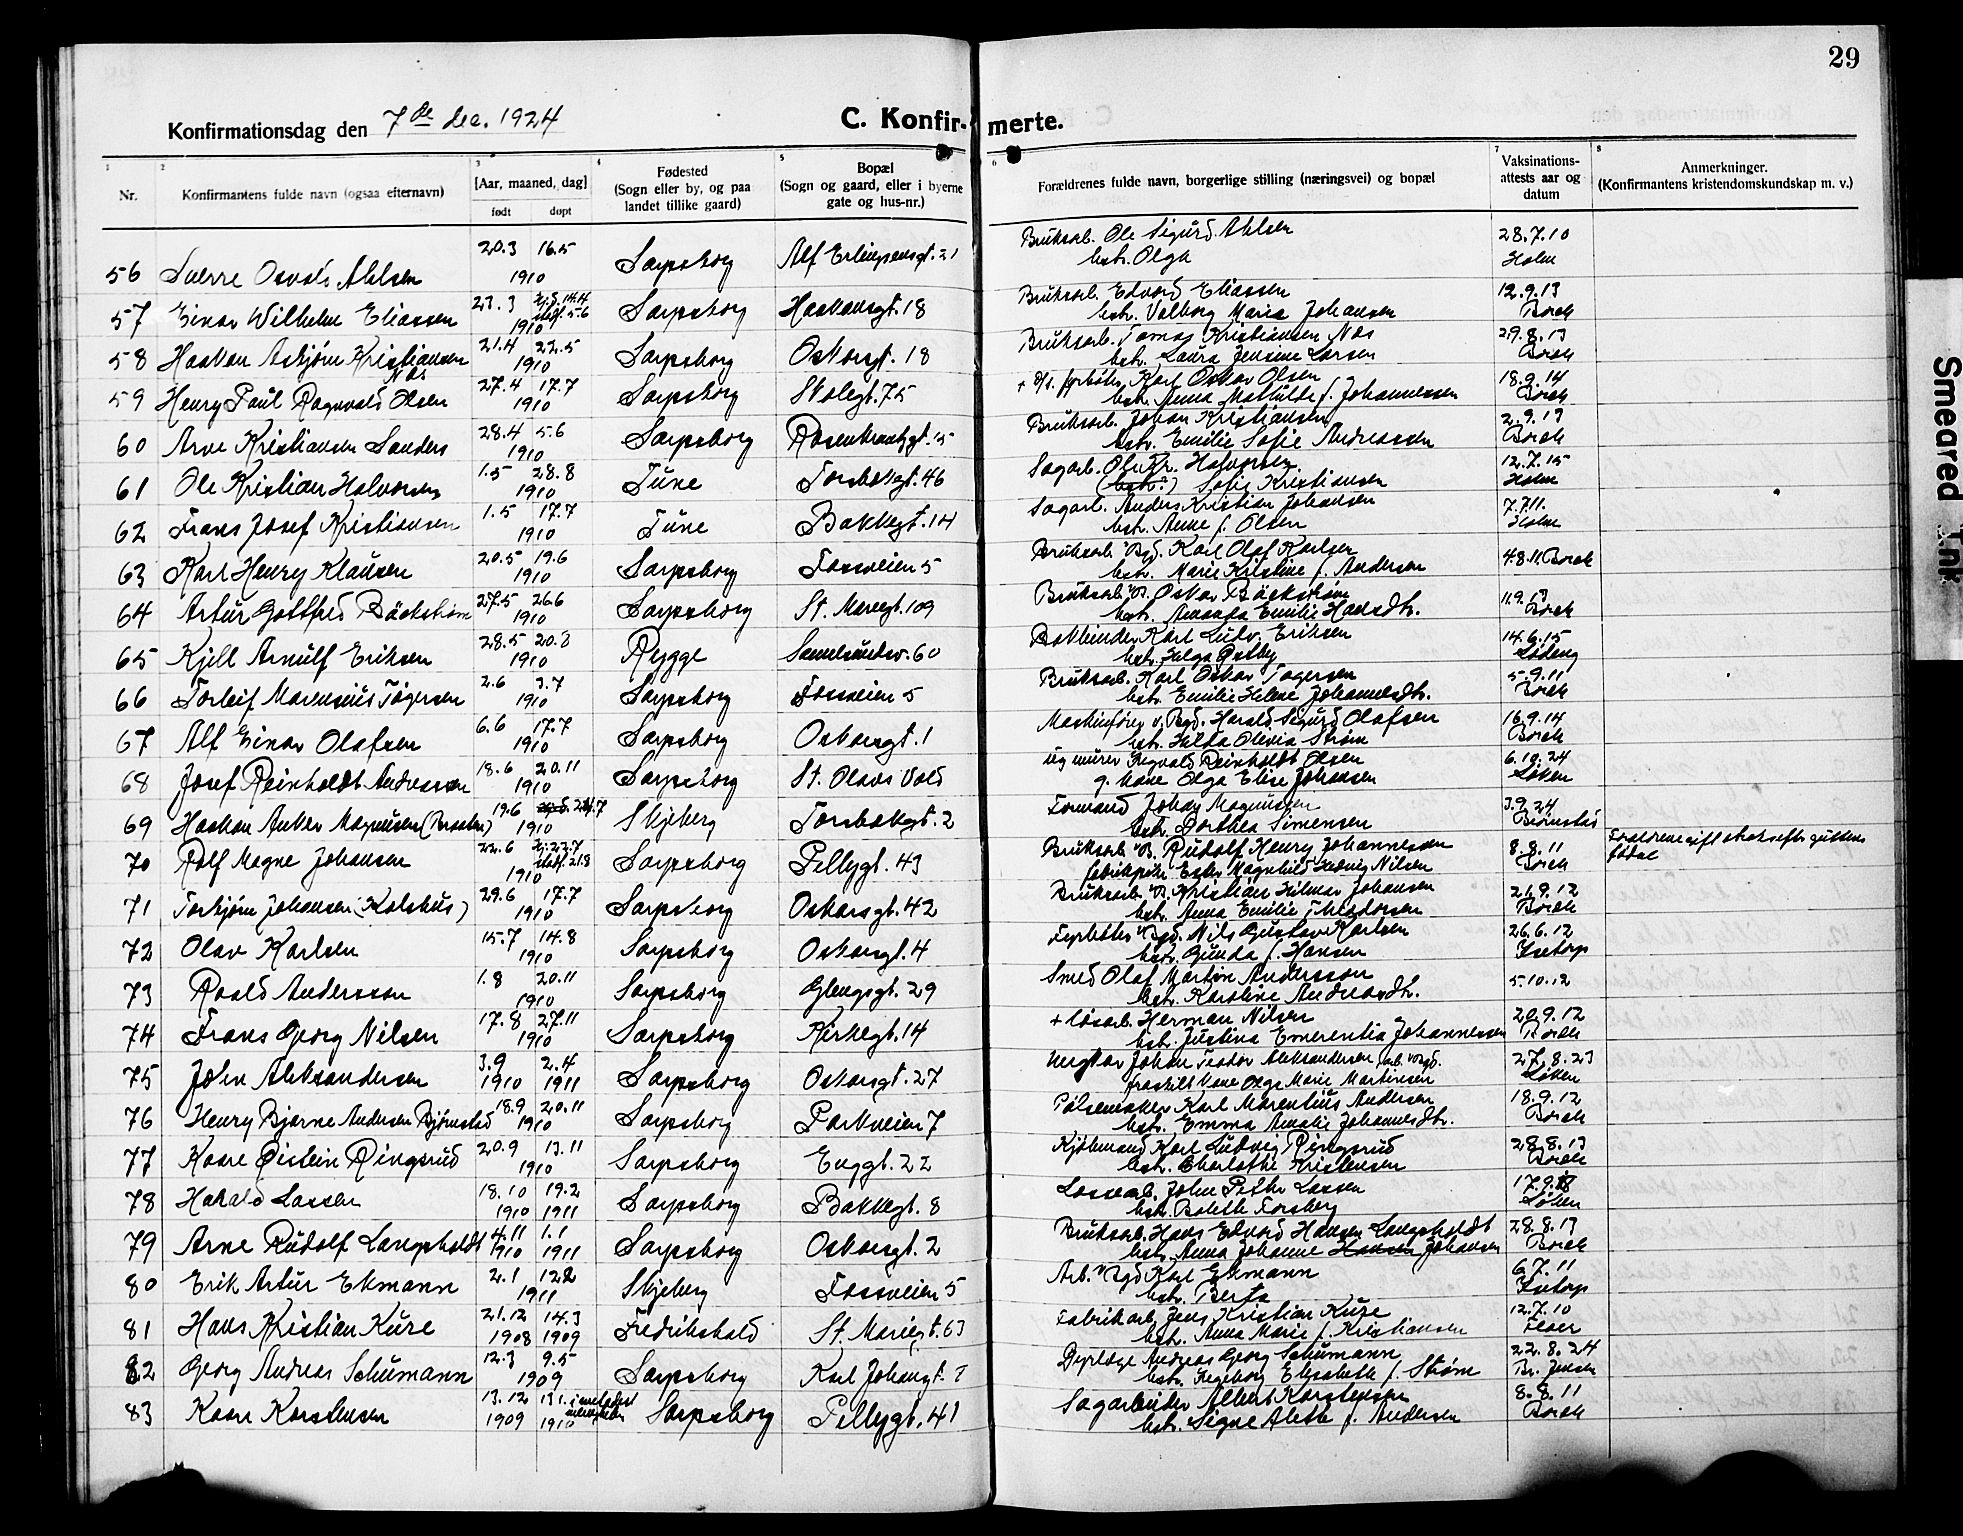 29
Konfirmationsdag den 7de dec. 1924
C. Konfirmerte.
Nr.
Konfirmantens fulde navn (ogsaa efternavn)
[Aar, maaned, dag]
født døpt
Fødested
(Sogn eller by, og paa
landet tillike gaard)
Bopæl
(Sogn og gaard, eller i byerne
gate og hus-nr.)
Forældrenes fulde navn, borgerlige stilling (næringsvei) og bopæl
Vaksinations-
attests aar og
datum
Anmerkninger.
(Konfirmantens kristendomskundskap m. v.)
56 Sverre Osvald Ahlsen 20.3 16.5 1910 Sarpsborg Alf Erlingsensgt. 21 Bruksarb. Ole Sigurd Ahlsen 28.7.10
hstr. Olga Holm
57 Einar Wilhelm Eliassen 23.3 1910 Sarpsborg Haakonsgt. 18 Bruksarb. Edvard Eliassen 12.9.13
hstr. Valborg Marie Johansen Borch
58 Haakon Asbjørn Kristiansen Næs 21.4 22.5 1910 Sarpsborg Oskarsgt. 18 Bruksarb. Tomas Kristiansen Næs 29.8.13
hstr. Laura Jensine Larsen Borch
59 Henry Paul Ragnvald Olsen 27.4 17.7 1910 Sarpsborg Skolegt. 75 Karl Oskar Olsen 18.9.14
hstr. Anna Mathilde f. Johannessen Borch
60 Arve Kristiansen Sanders 28.4 5.6 1910 Sarpsborg Rosenkrantzgt. 15 Bruksarb. Johan Kristiansen 2.9.13
hstr. Emilie Sofie Andreassen Borch
61 Ole Kristian Halvorsen 1.5 28.8 1910 Tune Torsbekgt. 46 Sagarb. Ole Kr. Halvorsen 12.7.15
(hstr.) Sofie Kristiansen Holm
62 Frans Josef Kristiansen 1.5 17.7 1910 Tune Bakkegt. 14 Sagarb. Anders Kristian Johansen 7.7.11.
hstr. Anne f. Olsen Holm
63 Karl Henry Klausen 20.5 19.6 1910 Sarpsborg Fossveien 5 Bruksarb. Karl Olaf Karlsen 4.8.11. Borch
hstr. Marie Kristine f. Andersen
64 Artur Gottfred Bäckstrøm 27.5 26.6 1910 Sarpsborg St. Mariegt. 109 Bruksarb. Oskar Bäckstrøm 11.9.13
hstr. Amanda Emilie Hansdtr. Borch
65 Kjell Arnulf Eriksen 28.5 20.8 1910 Rygge Sannesundsv. 60 Bokbinder Karl Ludv. Eriksen 14.6.15
hstr. Helga Østby
66 Torleif Marensius Tøgersen 2.6 3.7 1910 Sarpsborg Fossveien 5 Bruksarb. Karl Oskar Tøgersen 5.9.11
hstr. Emilie Helene Johannesdtr. Borch
67 Alf Einar Olafsen 6.6 17.7 1910 Sarpsborg Oskarsgt. 1 Maskinfører v. Bgd. Harald Sigurd Olafsen 16.9.14
hstr. Hilda Olivia Strøm Borch
68 Josef Reinholdt Andreassen 18.6 20.11 1910 Sarpsborg St. Olavs Vold ug. murer Ragvald Reinholdt Olsen 6.10.24
g. kone Olga Elise Johansen Løken
69 Haakon Anker Magnusen 19.6 24.7 1910 Skjeberg Torsbekgt. 2 Formand Johan Magnussen 3.9.24
hstr. Dorthea Simensen Bjørnstad
70 Rolf Magne Johansen 22.6 1910 Sarpsborg Pellygt. 43 Bruksarb. Rudolf Henry Johannessen 8.8.11 Forældrene gift straks efter guttens
Ester Magnhild Hedvig Nilsen Borch fødsel
71 Torbjørn Johansen (Kolshus) 29.6 17.7 1910 Sarpsborg Oskarsgt. 42 Bruksarb. Kristian Hilmar Johansen 21.9.12
hstr. Anna Emilie Theodorsen Borch
72 Olav Karlsen 15.7 14.8 1910 Sarpsborg Oskarsgt. 4 Fyrbøter Bgd. Nils Gustav Karlsen 26.6.12
hstr. Gunda f. Hansen Isetorp
73 Roald Andersson 1.8 20.11 1910 Sarpsborg Glengsgt. 29 Smed Olaf Martin Andersson 5.10.12
hstr. Karoline Andreasdtr.
74 Frans Georg Nilsen 17.8 27.11 1910 Sarpsborg Kirkegt. 14 + løsarb. Herman Nilsen 20.9.12
hstr. Justina Emerentia Johannessen Borch
75 John Aleksandersen 3.9 1910 2.4 1911 Sarpsborg Oskarsgt. 27 Johan Teodor Aleksandersen 27.8.23
fraskilt kone Olga Marie Martinsen Løken
76 Henry Bjarne Andersen Bjørnstad 18.9 20.11 1910 Sarpsborg Parkveien 7 Pølsemaker Karl Marentius Andersen 18.9.12
hstr. Emma Amalie Johannesdtr. Borch
77 Kaare Øistein Ringsrud 20.9 13.11 1910 Sarpsborg Enggt. 22 Kjøbmand Karl Ludvig Ringsrud 28.8.13
hstr. Charlothe Kristensen Borch
78 Harald Lassen 18.10 1910 19.2 1911 Sarpsborg Bakkegt. 8 Lossearb. John Petter Lassen 17.9.18
hstr. Bolette Forsberg Løken
79 Arne Rudolf Langsholdt 4.11 1910 1.1 1911 Sarpsborg Oskarsgt. 2 Bruksarb. Hans Edvard Hansen Langsholdt 28.8.13
hstr. Anna Johanne Hansen Johansen Borch
80 Erik Artur Ekmann 2.1 12.2 1911 Skjeberg Fossveien 5 Arb. v Bgd Karl Ekmann 6.7.11
hstr. Berta Isetorp
81 Hans Kristian Kure 21.12 1908 14.3 1909 Fredrikshald St. Mariegt. 63 Fabrikarb. Jens Kristian Kure 12.7.10
hstr. Anna Marie f. Kristiansen
82 Georg Andreas Schumann 12.3 9.5 1909 Sarpsborg Karl Johansgt. 7 Dyrlæge Andreas Georg Schumann 22.8.24
hstr. Ingeborg Elisabeth f. Strøm Br. Jensen
83 Kaare Karstensen 13.12 1909 13.1. 1910 Sarpsborg Pellygt. 41 Sagarbeider Albert Karstensen 8.8.11
hstr. Signe Alette f. Andersen Borch
Smeared Ink